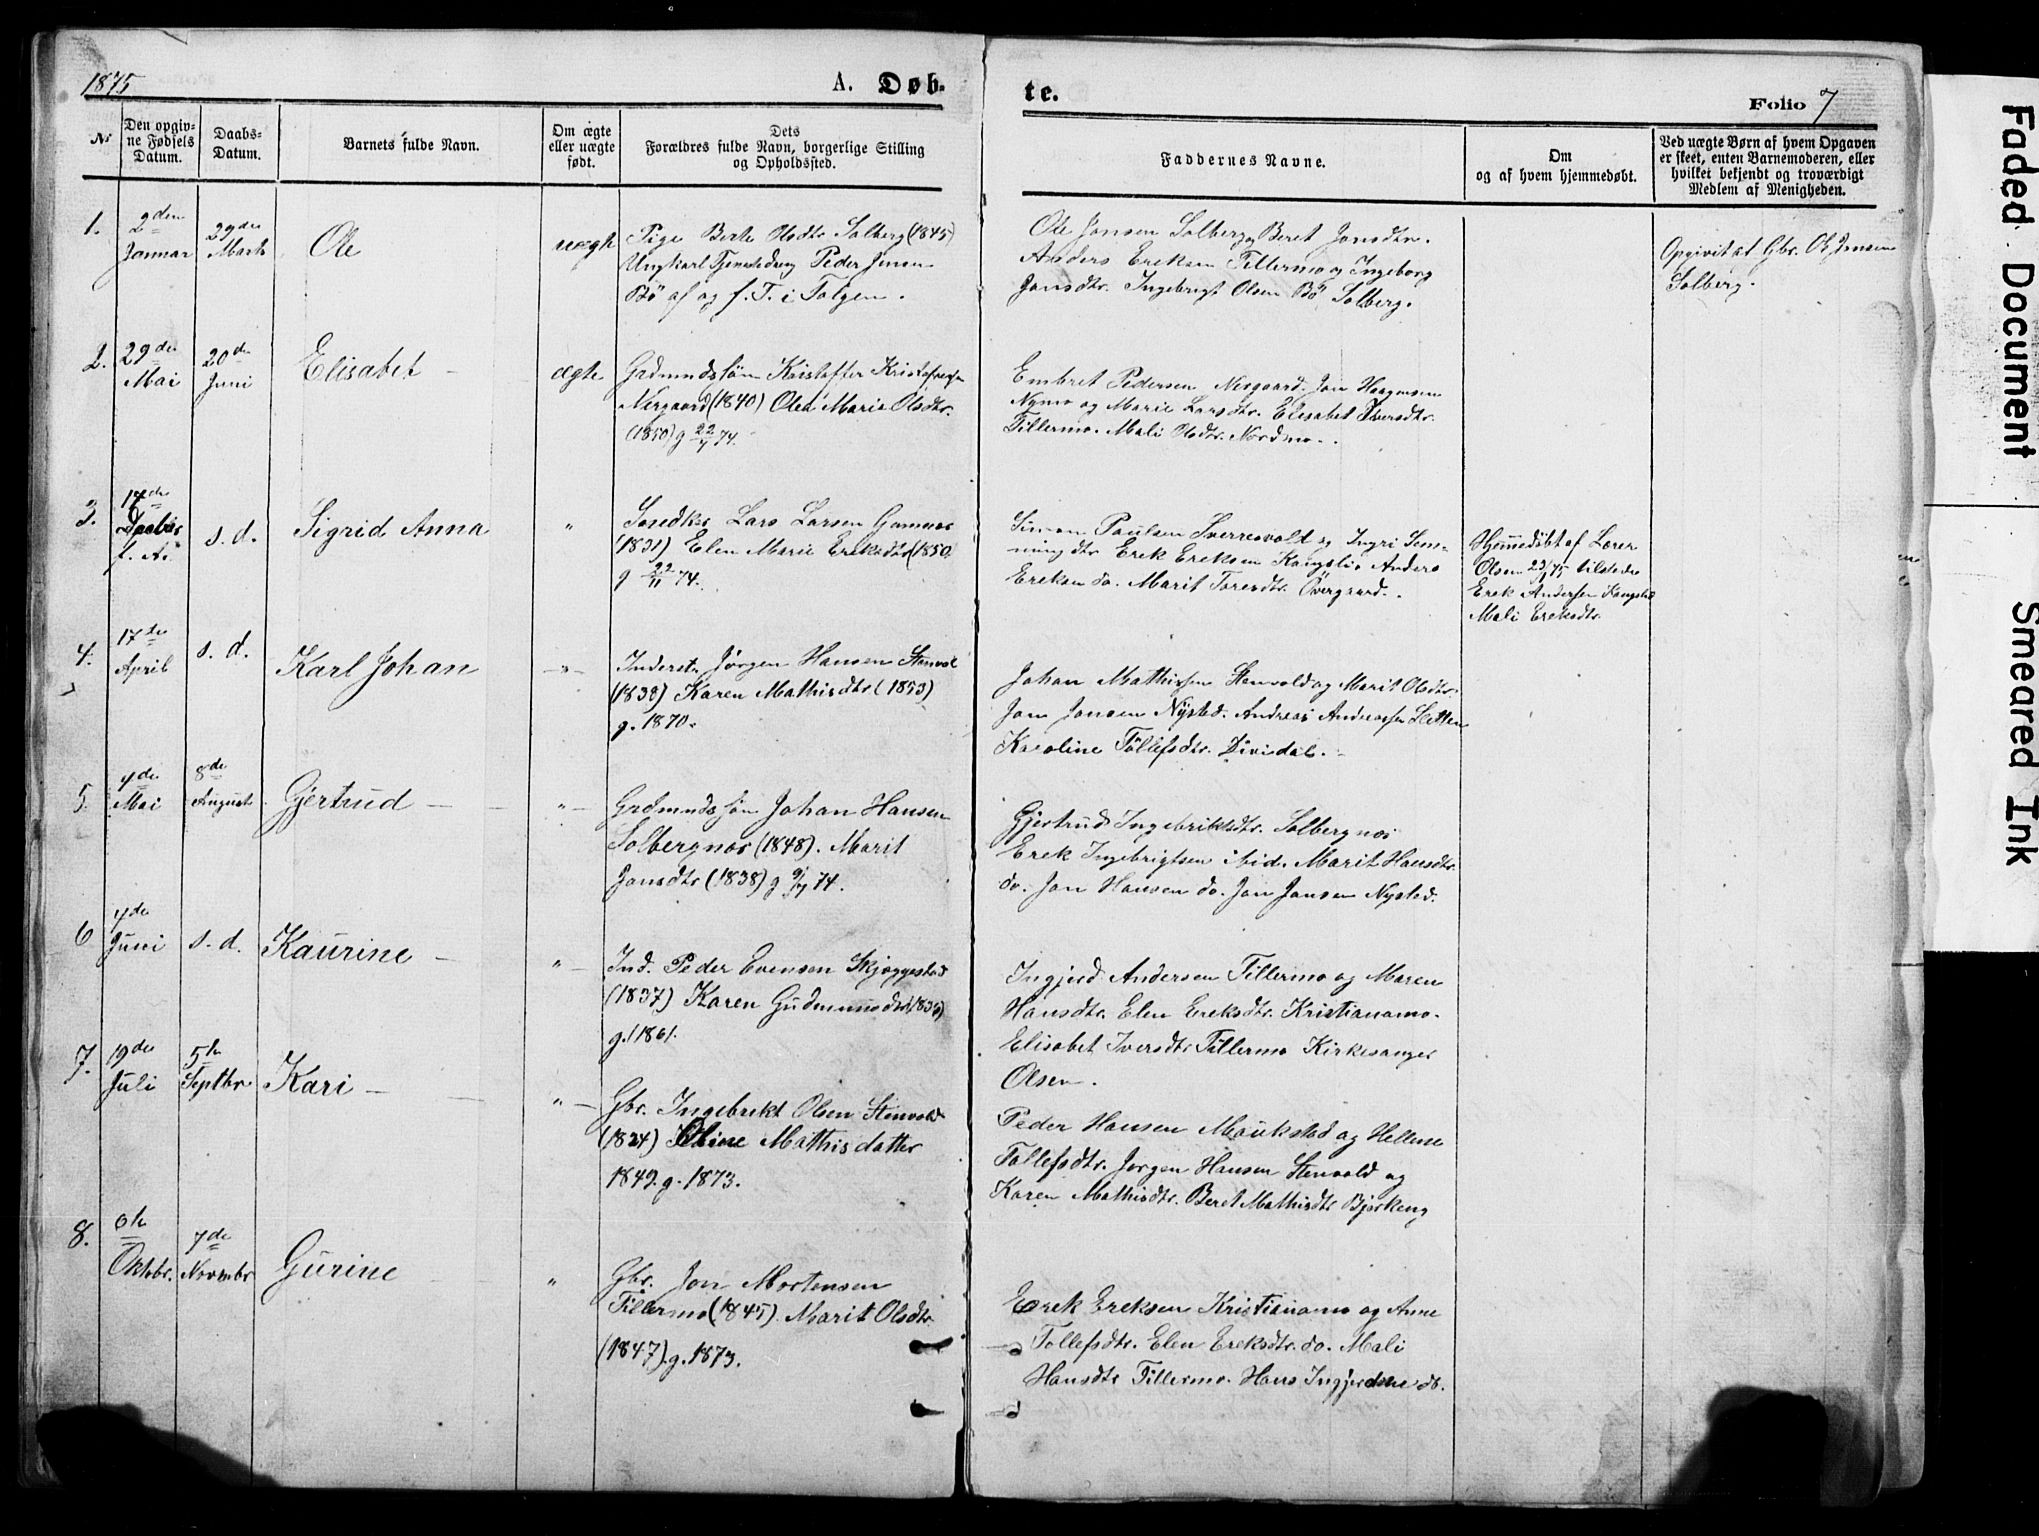 1875
A. Døb-
te.
Folio 7
№
Den opgiv-
ne Fødsels
Datum.
Daabs-
Datum.
Barnets fulde Navn.
Om ægte
eller uægte
født.
Dets
Forældres fulde Navn, borgerlige Stilling
og Opholdssted.
Faddernes Navne.
Om
og af hvem hjemmedøbt.
Ved uægte Børn af hvem Opgaven
er skeet, enten Barnemoderen, eller
hvilket bekjendt og troværdigt
Medlem af Menigheden.
1.
2den
Januar
29de
Marts
Ole
uægte
Pige Berte Olsdtr Solberg (1845)
Ungkarl Tjenestedreng Peder Jensen
Bö af og f. T. i Tolgen.
Ole Jonsen Solberg, Beret Jonsdtr.
Anders Ereksen Tillermo og Ingeborg
Jonsdtr. Ingebrigt Olsen Bö Solberg.
Opgivit af Gbr. Ole Jonsen
Solberg.
2.
29de
Mai
20de
Juni
Elisabet
ægte
Grdmandsfön Kristoffer Kristofersen
Nergaard (1840) Olea Marie Olsdtr.
(1850) g 22/7 74.
Embret Pedersen Nergaard. Jon Haagensen
Nymo og Marie Larsdtr. Elisabet Iversdtr.
Tillermo. Mali Olsdtr. Nordmo.
3.
17de
s. d.
Sigrid Anna
"
Lars Larsen Gamnes
(1831) Elen Marie Ereksdtr (1850)
g 22/11 74.
Simon Paulsen Sverresvold og Ingri Sem-
mingdtr Erek Ereksen Kongsli Anders
Ereksen do. Marit Toresdtr. Övergaard.
Hjemmedöbt af Lærer
Olsen 23/1 75 tilstede
Erek Andersen Kongsli
Mali Ereksdtr.
4.
17de
April
s. d.
Karl Johan
"
Inderst. Jörgen Hansen Stenvol
(1838) Karen Mathisdtr (1853)
g. 1870.
Johan Mathissen Stenvold og Marit Olsdtr.
Jon Jonsen Nysted. Andreas Andreassen Sletten
Karoline Tollefsdtr. Dividal.
5.
4de
Mai
8de
August
Gjertrud
"
Grdmandsfön Johan Hansen
Solbergnæs (1848). Marit
Jonsdtr (1838) g 9/7 74.
Gjertrud Ingebriktsdtr. Solbergnæs
Erek Ingebrigtsen ibid. Marit Hansdtr.
do. Jon Hansen do. Jon Jonsen Nysted.
6
4de
Juni
s. d.
Kaurine
"
Ind. Peder Evensen Skjæggestad
(1837) Karen Gudmunsdtr (1836)
g. 1861.
Ingjerd Andersen Tillermo og Maren
Hansdtr. Elen Ereksdtr. Kristianamo.
Elisabet Iversdtr Tillermo Kirkesanger
Olsen.
7.
19de
Juli
5te
Septbr
Kari
"
Gbr. Ingebrekt Olsen Stenvold
(1824) Oline Mathisdatter
1849. g. 1873.
Peder Hansen Moukstad og Helline
Tollefsdtr. Jörgen Hansen Stenvold og
Karen Mathisdtr. Beret Mathisdtr Björkeng
8.
6te
Oktobr.
7de
Novembr
Gurine
"
Gbr. Jon Mortensen
Tillermo (1845) Marit Olsdtr
(1847) g. 1873.
Erek Ereksen Kristianamo og Anne
Tollefsdtr. Elen Ereksdtr. do. Mali
Hansdtr Tillermo. Hans Ingjerdsen do.
Faded Document
Smeared Ink